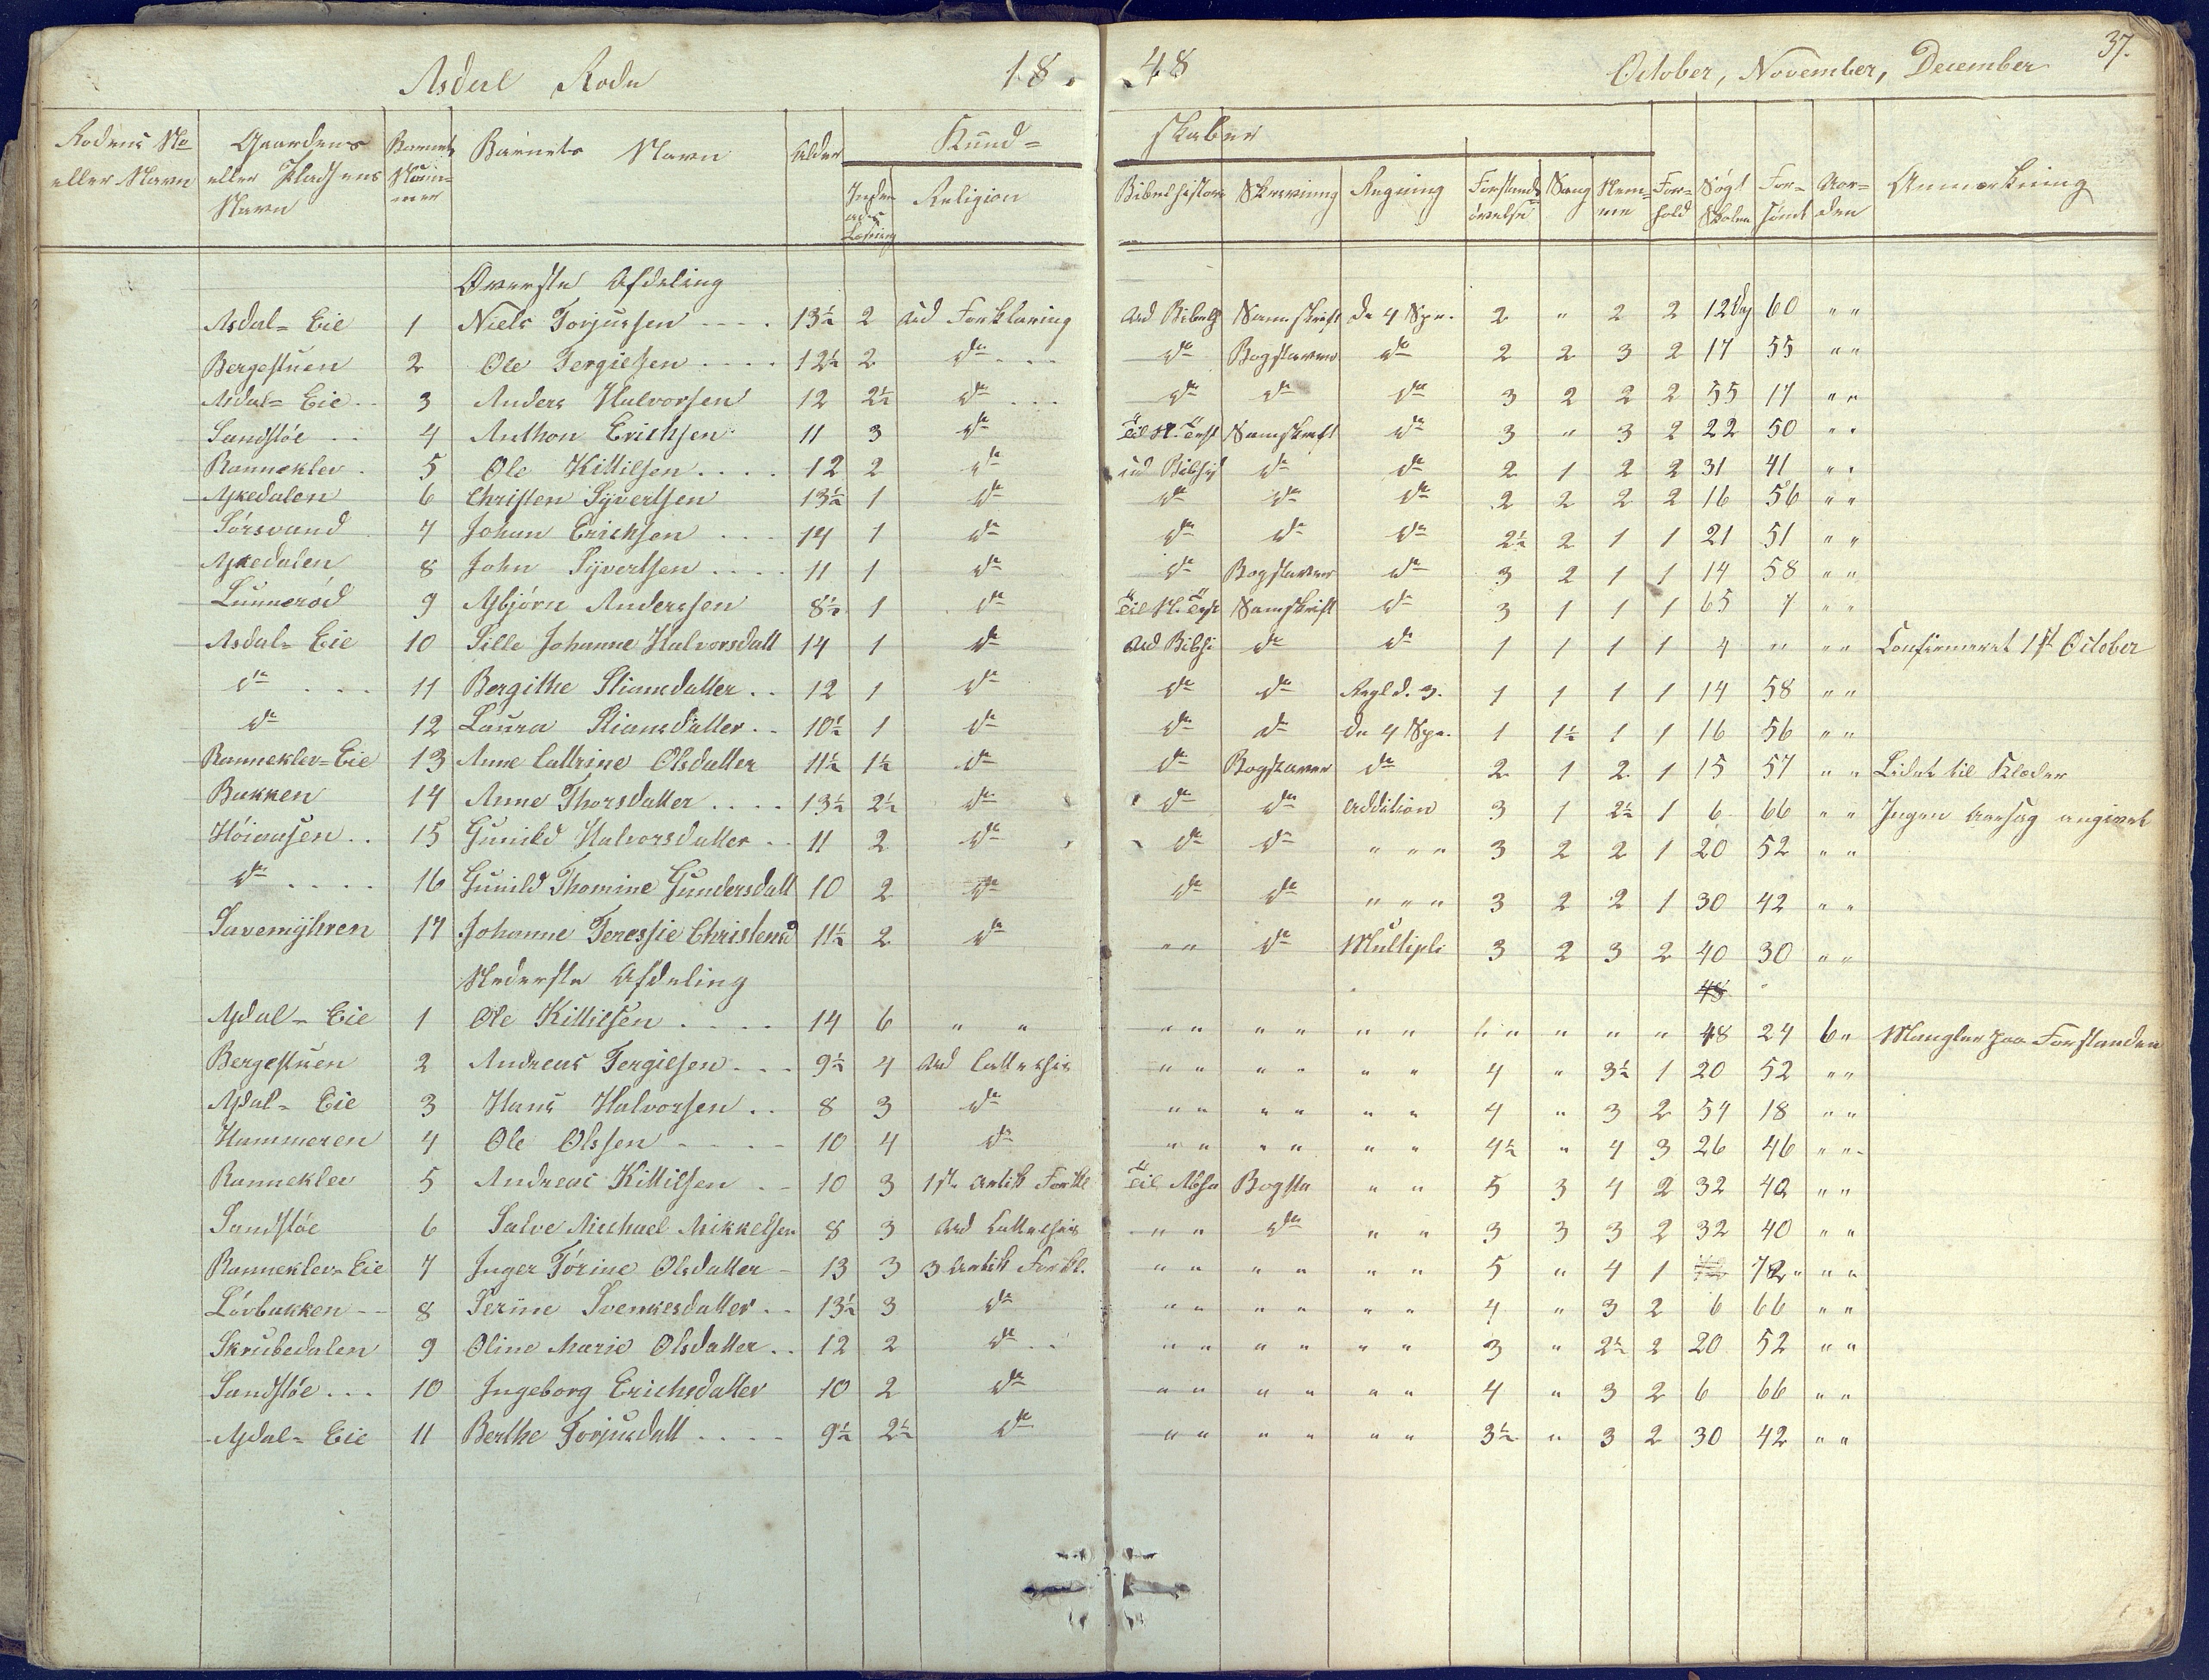 Asdal Rode 18 48 October, November, December 37.
Rodens No eller Navn | Gaardens eller Pladsens Navn | Barnets Nummer | Barnets Navn | Alder | Kund= skaber | Inden ads Læsning | Religion | Bibelhistorie | Skrivning | Regning | Forstands øvelse | Sang | Nem= me | For= hold | Søgt Skolen | For= sømt | Aar= den | Anmærkning
Øverste Afdeling
Asdal= Eie 1 Niels Torjussen .... 13½ 2 ud Forklaring ud Bibelh Samskrift de 4 Spe. 2 " 2 2 12 Dg 60 " "
Bergestuen 2 Ole Tergielsen .... 12½ 2 do ... do Bogstaver do 2 2 3 2 17 55 " "
Asdal= Eie .. 3 Anders Halvorsen 12 2½ do ... do do do 3 2 2 2 55 17 " "
Sandsløe .. 4 Anthon Erichsen 11 3 do Til N. Test Samskrift do 3 " 3 2 22 50 " "
Rannekler . 5 Ole Kittilsen .... 12 2 do ud Bibhi do do 2 1 2 2 31 41 " "
Askedalen 6 Christen Syvertsen 13½ 1 do do do do 2 2 2 2 16 56 " "
Sørsvand 7 Johan Erichsen ... 14 1 do do do do 2½ 2 1 1 21 51 " "
Askedalen 8 John Syvertsen .... 11 1 do do Bogstaver do 3 2 1 1 14 58 " "
Lunnerød 9 Asbjørn Anderssen 8½ 1 do Til N. Test Samskrift do 3 1 1 1 65 7 " "
Asdal= Eie 10 Sille Johanne Halvorsdatt 14 1 do ud Bibhi do do 1 1 1 1 4 " " " Confirmeret 1st October
do ... 11 Bergithe Stiansdatter .. 12 1 do do do Regl d. 3. 1 1 1 1 14 58 " "
do 12 Laura Stiansdatter .. 10½ 1 do do do de 4 Spe. 1 1½ 1 1 16 56 " "
Rannekler= Eie 13 Anne Cattrine Olsdatter 11½ 1½ do do Bogstaver do 2 1 2 1 15 57 " " Lidet til Klæder
Bakken 14 Anne Thorsdatter .... 13½ 2½ do do do Addition 3 1 2½ 1 6 66 " " Ingen Aarsag angivet
Høiaasen .. 15 Gunild Halvorsdatter .. 11 2 do do do " " " 3 2 2 1 20 52 " "
do .... 16 Gunild Thomine Gundersdatt 10 2 do do do " " " 3 2 2 1 30 42 " "
Savemyhren 17 Johanne Teressie Christensd 11½ 2 do " " do Multipli 3 2 3 2 40 30 " "
Nederste Afdeling 48
Asdal= Eie 1 Ole Kittilsen .... 14 6 " " " " " " " " " " " " " 48 24 6 " Mangler paa Forstanden
Bergestuen 2 Andreas Tergielsen ... 9½ 4 ud Cattechis " " " " " " 4 " 3½ 1 20 52 " "
Asdal= Eie 3 Hans Halvorsen .. 8 3 do " " " " " " 4 " 3 2 54 18 " "
Hammeren 4 Ole Olssen .... 10 4 do " " " " " " 4½ " 4 3 26 46 " "
Rannekler 5 Andreas Kittilsen .. 10 3 1ste Artik Forkl Til Absa Bogsta " " 5 3 4 2 32 40 " "
Sandsløe 6 Salve Michael Mikkelsen 8 3 ud Cattechis " " do " " 3 3 3 2 32 40 " "
Rannekler= Eie 7 Inger Tørine Olsdatter - 13 3 3 Artik Forkl. " " " " " " 5 " 4 1 72 " " "
Løvbakken -- 8 Serine Svenkesdatter .. 13½ 3 do " " " " " " 4 " 3 2 6 66 " "
Skrubedalen 9 Oline Marie Olsdatter .. 12 2 do .. " " " " " " 3 " 2½ 2 20 52 " "
Sandsløe ... 10 Ingeborg Erichsdatter 10 2 do " " " " " " 4 " 3 2 6 66 " "
Asdal= Eie 11 Berthe Torjusdatt .... 9½ 2½ do " " " " " " 3½ " 3 2 30 42 " "